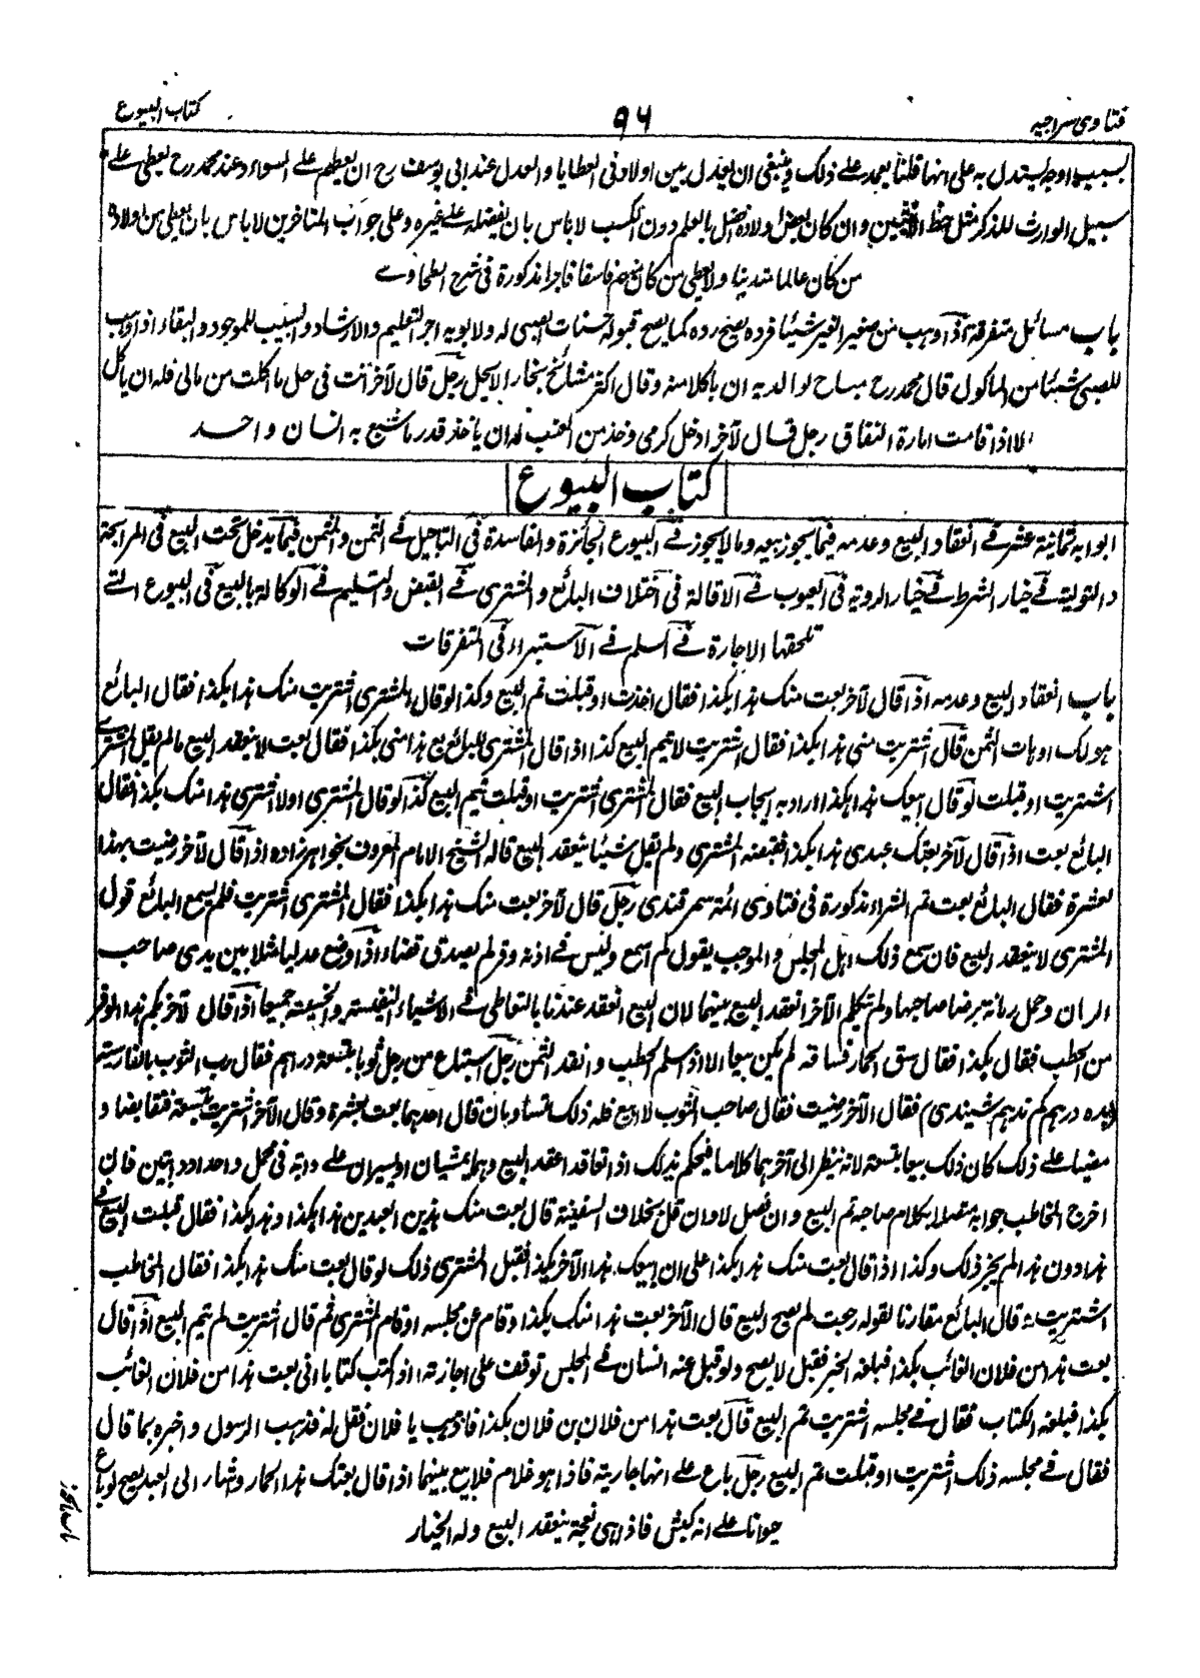 فتاوى سراجيه
٩٦
كتاب البيوع
بسبب اوجه يستدل به على انها قلنا يعمد على ذلك وينبغي ان يعدل بين اولاده في العطايا والعدل عند ابي يوسف رح ان يعطيهم على السواء وعند محمد رح يعطي على
سبيل الوارث للذكر مثل حظ الانثيين وان كان بعض اولاده افضل بالعلم دون الكسب لا باس بان يفضله على غيره وعلى جواب المتاخرين لا باس بان يعطي من اولاده
من كان عالما متدينا ولا يعطي من كان منهم فاسقا فاجرا مذكورة في شرح الطحاوي
باب مسائل متفرقة اذا وهب من صغير الغير شيئا فرده يصح رده كما يصح قبوله حسنات الصبي له ولابويه اجر التعليم والارشاد والسبب للموجود والبقاء اذا وهب
للصبي شيئا من الماكول قال محمد رح مباح لوالديه ان ياكلا منه وقال اكثر مشائخ بخارا لا يحل رجل قال لآخر انت في حل ما اكلت من مالي فله ان ياكل
الا اذا قامت امارة النفاق رجل قال لآخر ادخل كرمي وخذ من العنب له ان ياخذ قدر ما يشبع به انسان واحد
كتاب البيوع
ابوابه ثمانية عشر في انعقاد البيع وعدمه فيما يجوز بيعه وما لا يجوز في البيوع الجائزة والفاسدة في التاجيل في الثمن والمثمن فيما يدخل تحت البيع في المرابحة
والتولية في خيار الشرط في خيار الروية في العيوب في الاقالة في اختلاف البائع والمشتري في القبض والتسليم في الوكالة بالبيع في البيوع التي
تلحقها الاجازة في السلم في الاستبراء في المتفرقات
باب انعقاد البيع وعدمه اذا قال لآخر بعت منك هذا بكذا فقال اخذت او قبلت تم البيع وكذا لو قال المشتري اشتريت منك هذا بكذا فقال البائع
هو لك او هات الثمن قال اشتريت مني هذا بكذا فقال اشتريت لا يتم البيع كذا اذا قال المشتري للبائع بع هذا مني بكذا فقال بعت لا ينعقد البيع ما لم يقل المشتري
اشتريت او قبلت لو قال ابيعك هذا بكذا واراد به ايجاب البيع فقال المشتري اشتريت او قبلت يتم البيع كذا لو قال المشتري اولا اشتري هذا منك بكذا فقال
البائع بعت اذا قال لآخر بعتك عبدي هذا بكذا فقبضه المشتري ولم يقل شيئا ينعقد البيع قاله الشيخ الامام المعروف بخواهرزاده اذا قال لآخر رضيت بهذا
بعشرة فقال البائع بعت تم الشراء مذكورة في فتاوى ائمة سمرقندي رجل قال لآخر بعت منك هذا بكذا فقال المشتري اشتريت فلم يسمع البائع قول
المشتري لا ينعقد البيع فان سمع ذلك اهل المجلس والموجب يقول لم اسمع وليس في اذنه وقر لم يصدق قضاء اذا وضع عدليا مثلا بين يدي صاحب
الرمان وحمل رمانة برضا صاحبها ولم يتكلم الآخر انعقد البيع بينهما لان البيع انعقد عندنا بالتعاطي في الاشياء النفيسة والخسيسة جميعا اذا قال لآخر بكم هذا الوقر
من الحطب فقال بكذا فقال سق الحمار فساقه لم يكن بيعا الا اذا سلم الحطب وانقد الثمن رجل استباع من رجل ثوبا بتسعة دراهم فقال رب الثوب بالفارسية
بده درهم كم ندهم شنيدي فقال الآخر رضيت فقال صاحب الثوب لا ابيع فله ذلك تساوما بان قال احدهما بعت بعشرة وقال الآخر اشتريت بتسعة فتقابضا و
مضيا على ذلك كان ذلك بيعا بتسعة لانه ينظر الى آخرهما كلاما فيحكم بذلك اذا تعاقدا عقد البيع وهما يمشيان او يسيران على دابة في محمل واحد او دابتين فان
اخرج المخاطب جوابه متصلا بكلام صاحبه تم البيع وان فصل لا وان قل بخلاف السفينة قال بعت منك هذين العبدين هذا بكذا وهذا بكذا فقال قبلت البيع في
هذا دون هذا لم يجز ذلك وكذا اذا قال بعت منك هذا بكذا على ان ابيعك هذا الآخر بكذا فقبل المشتري ذلك لو قال بعت منك هذا بكذا فقال المخاطب
اشتريت وقال البائع مقارنا لقوله رجعت لم يصح البيع قال لآخر بعت هذا منك بكذا وقام عن مجلسه او قام المشتري ثم قال اشتريت لم يتم البيع اذا قال
بعت هذا من فلان الغائب بكذا فبلغه الخبر فقبل لا يصح ولو قبل عنه انسان في المجلس توقف على اجازته اذا كتب كتابا اني بعت هذا من فلان الغائب
بكذا فبلغه الكتاب فقال في مجلسه اشتريت تم البيع قال بعت هذا من فلان بن فلان بكذا فاذهب يا فلان فقل له فذهب الرسول واخبره بما قال
فقال في مجلسه ذلك اشتريت او قبلت تم البيع رجل باع على انها جارية فاذا هو غلام فلا بيع بينهما اذا قال بعتك هذا الحمار واشار الى العبد يصح لو باع
حيوانا على انه كبش فاذا هي نعجة ينعقد البيع وله الخيار